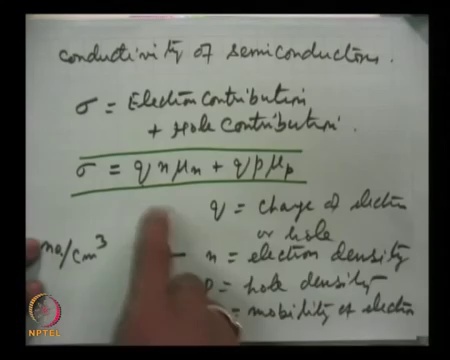 conductivity of semiconductors.
σ = Electron contribution
+ Hole contribution.
σ = q n μn + q p μp
q = charge of electron
or hole
no/cm³ — n = election density
p = hole density
= mobility of electron
NPTEL